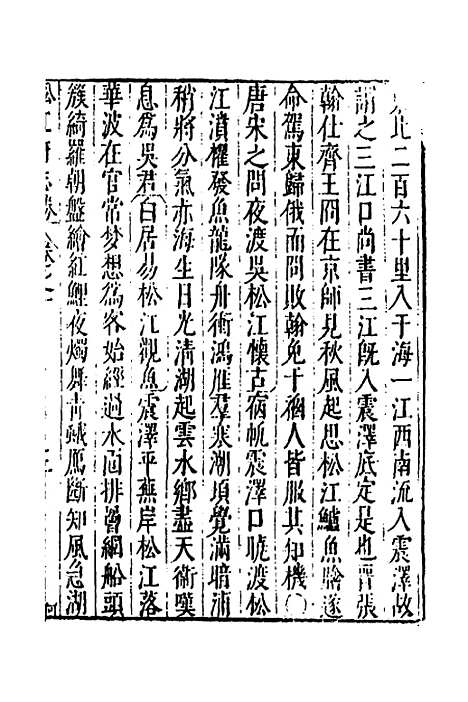 北二百六十里入于海一江西南流入震澤故
謂之三江口尚書三江旣入震澤底定是也晋張
翰仕齊王冏在京師見秋風起思松江鱸魚膾遂
命駕東歸俄而冏敗翰免于禍人皆服其知機〇
唐宋之問夜渡吳松江懷古宿帆震澤口曉渡松
江濆櫂發魚龍隊舟衝鴻雁羣寒湖頃覺滿暗浦
稍將分氣赤海生日光清湖起雲水鄉盡天衛嘆
息爲吳君白居易松江觀魚震澤平蕪岸松江落
華波在官常梦想爲客始經過水面排罾網船頭
簇綺羅朝盤繪紅鯉夜燭舞青蛾鴈斷知風急湖
松江府志卷